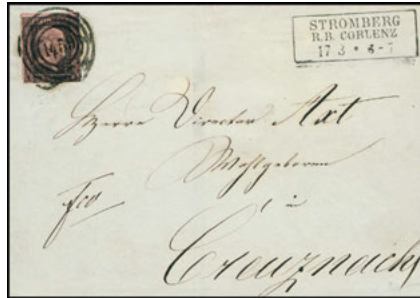 STROMBERG
R.B. COBLENZ
17 3 * 6-7
Herrn Director Axt
Wohlgeboren
fco
in
Creuznach